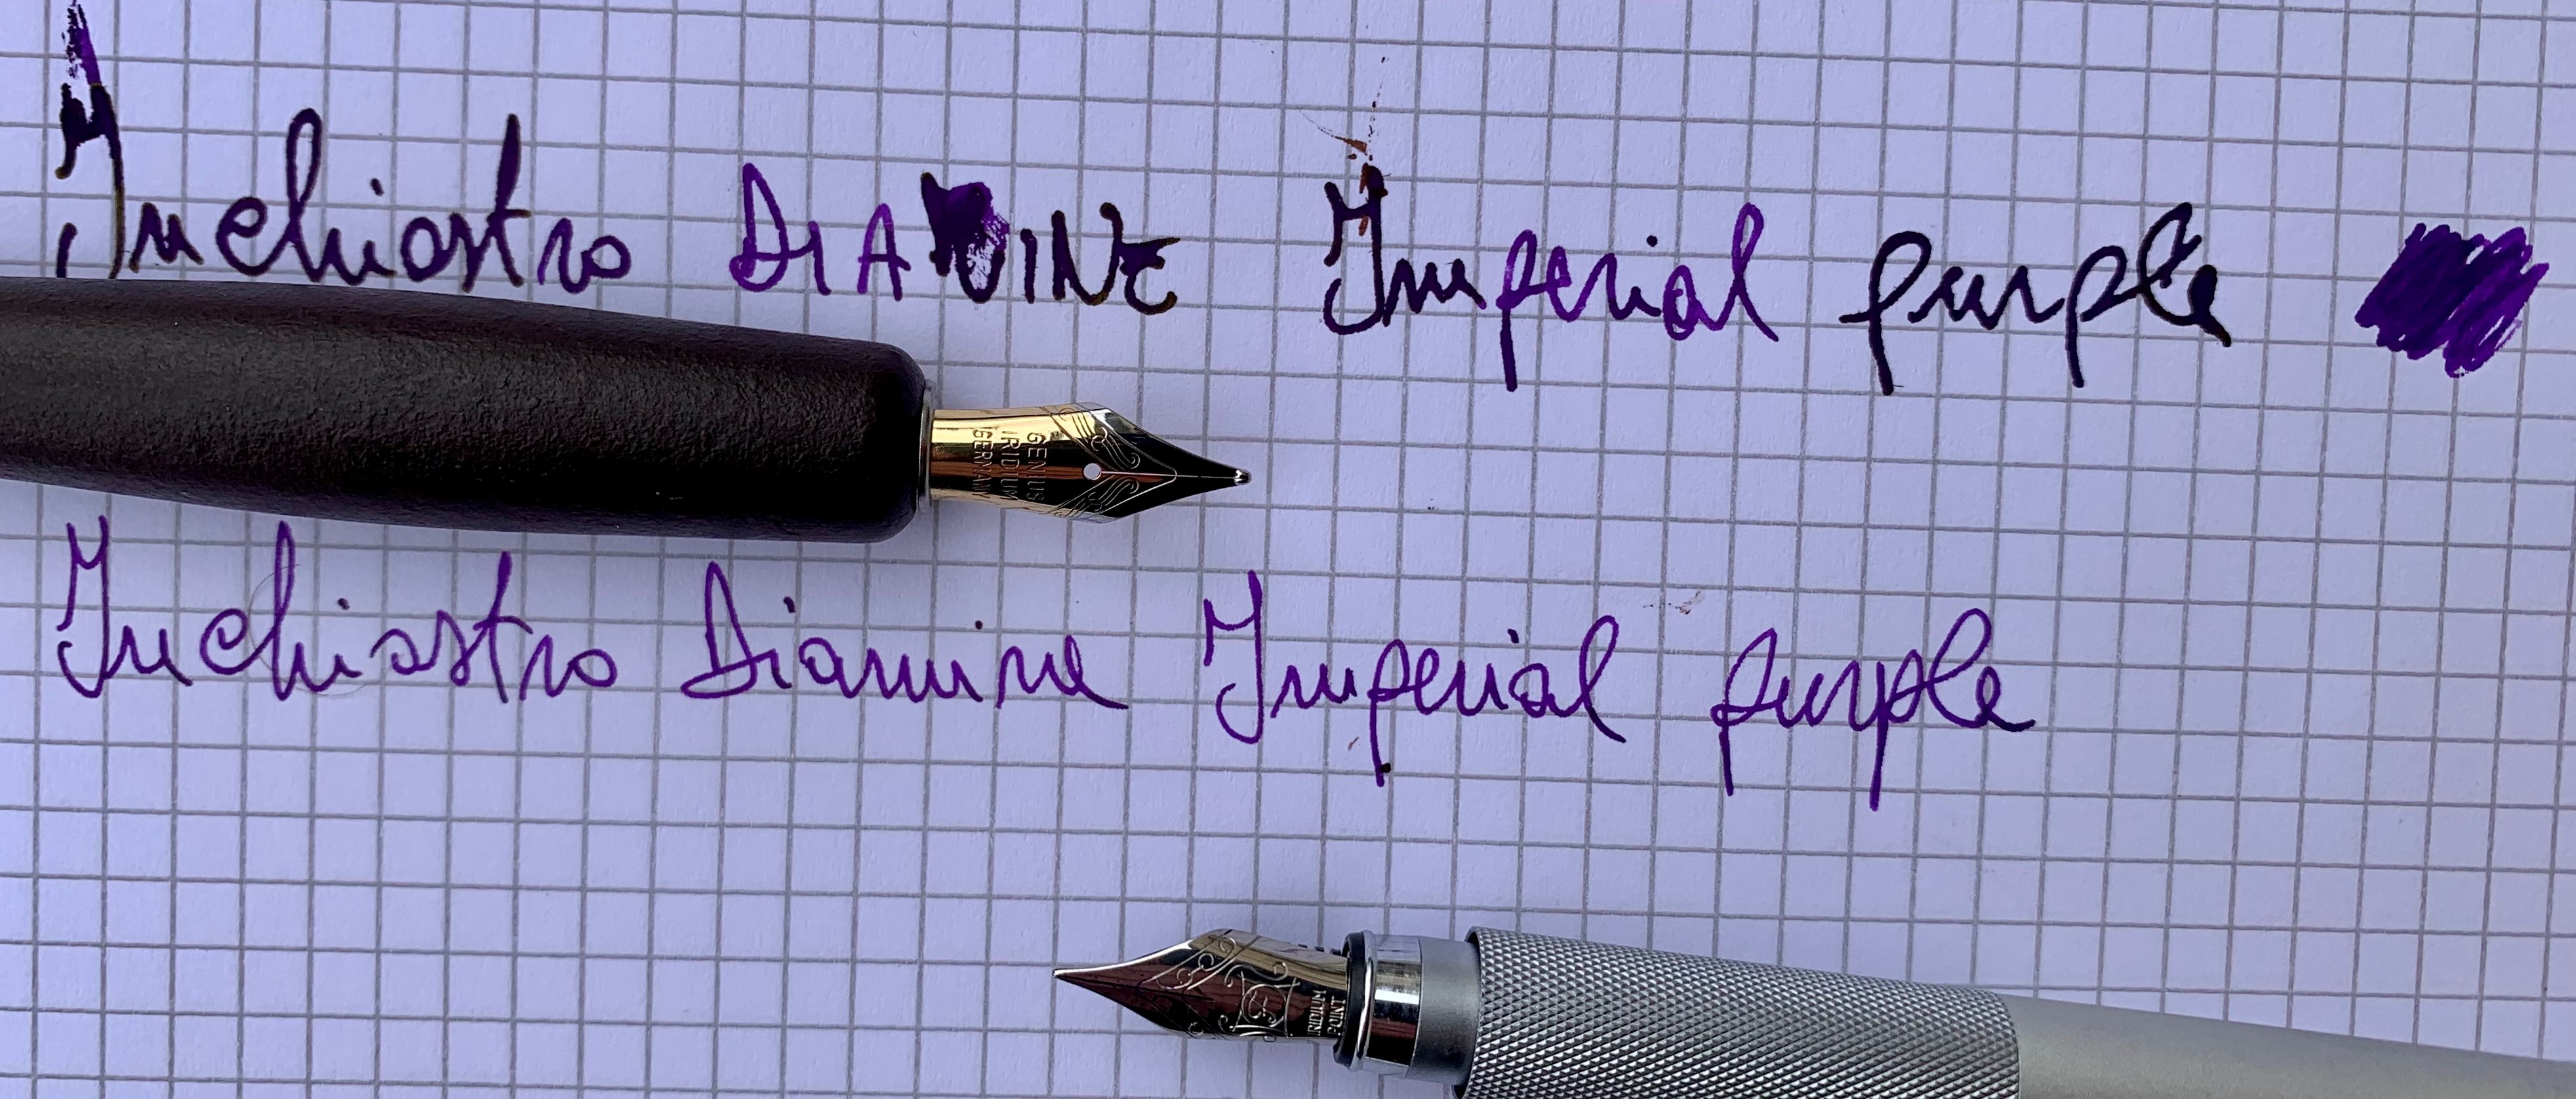 Inchiostro DIAMINE Imperial purple
GENIUS
IRIDIUM
GERMANY
Inchiostro Diamine Imperial purple
IRIDIUM
POINT